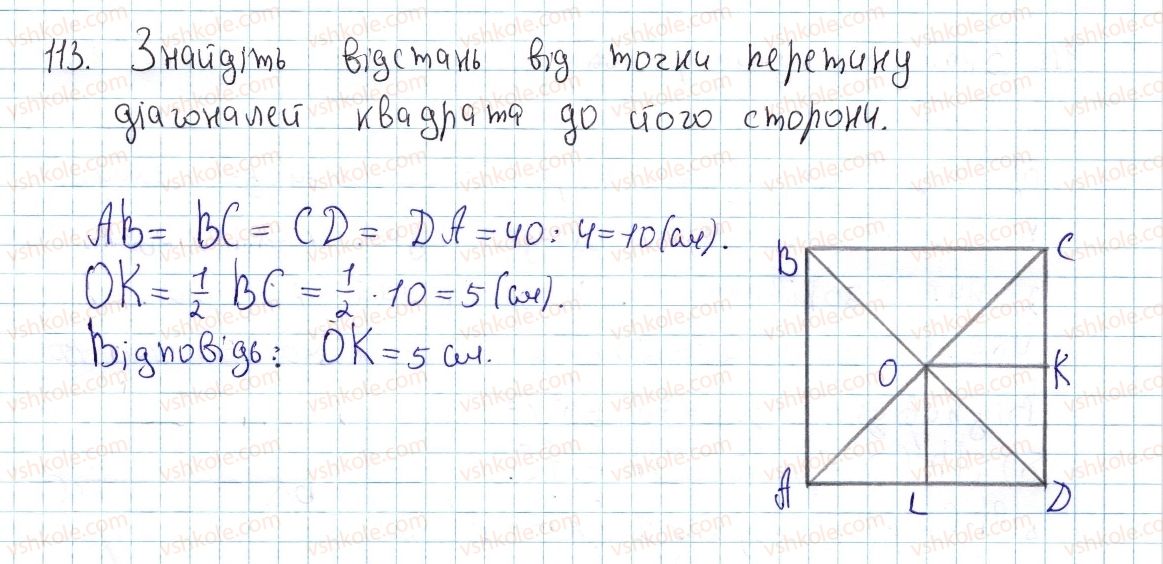 113. Знайдіть відстань від точки перетину
діагоналей квадрата до його сторони.
AB = BC = CD = DA = 40 : 4 = 10 (см).
OK = 1/2 BC = 1/2 · 10 = 5 (см).
Відповідь: OK = 5 см.
B C
O K
A L D
vshkole.com